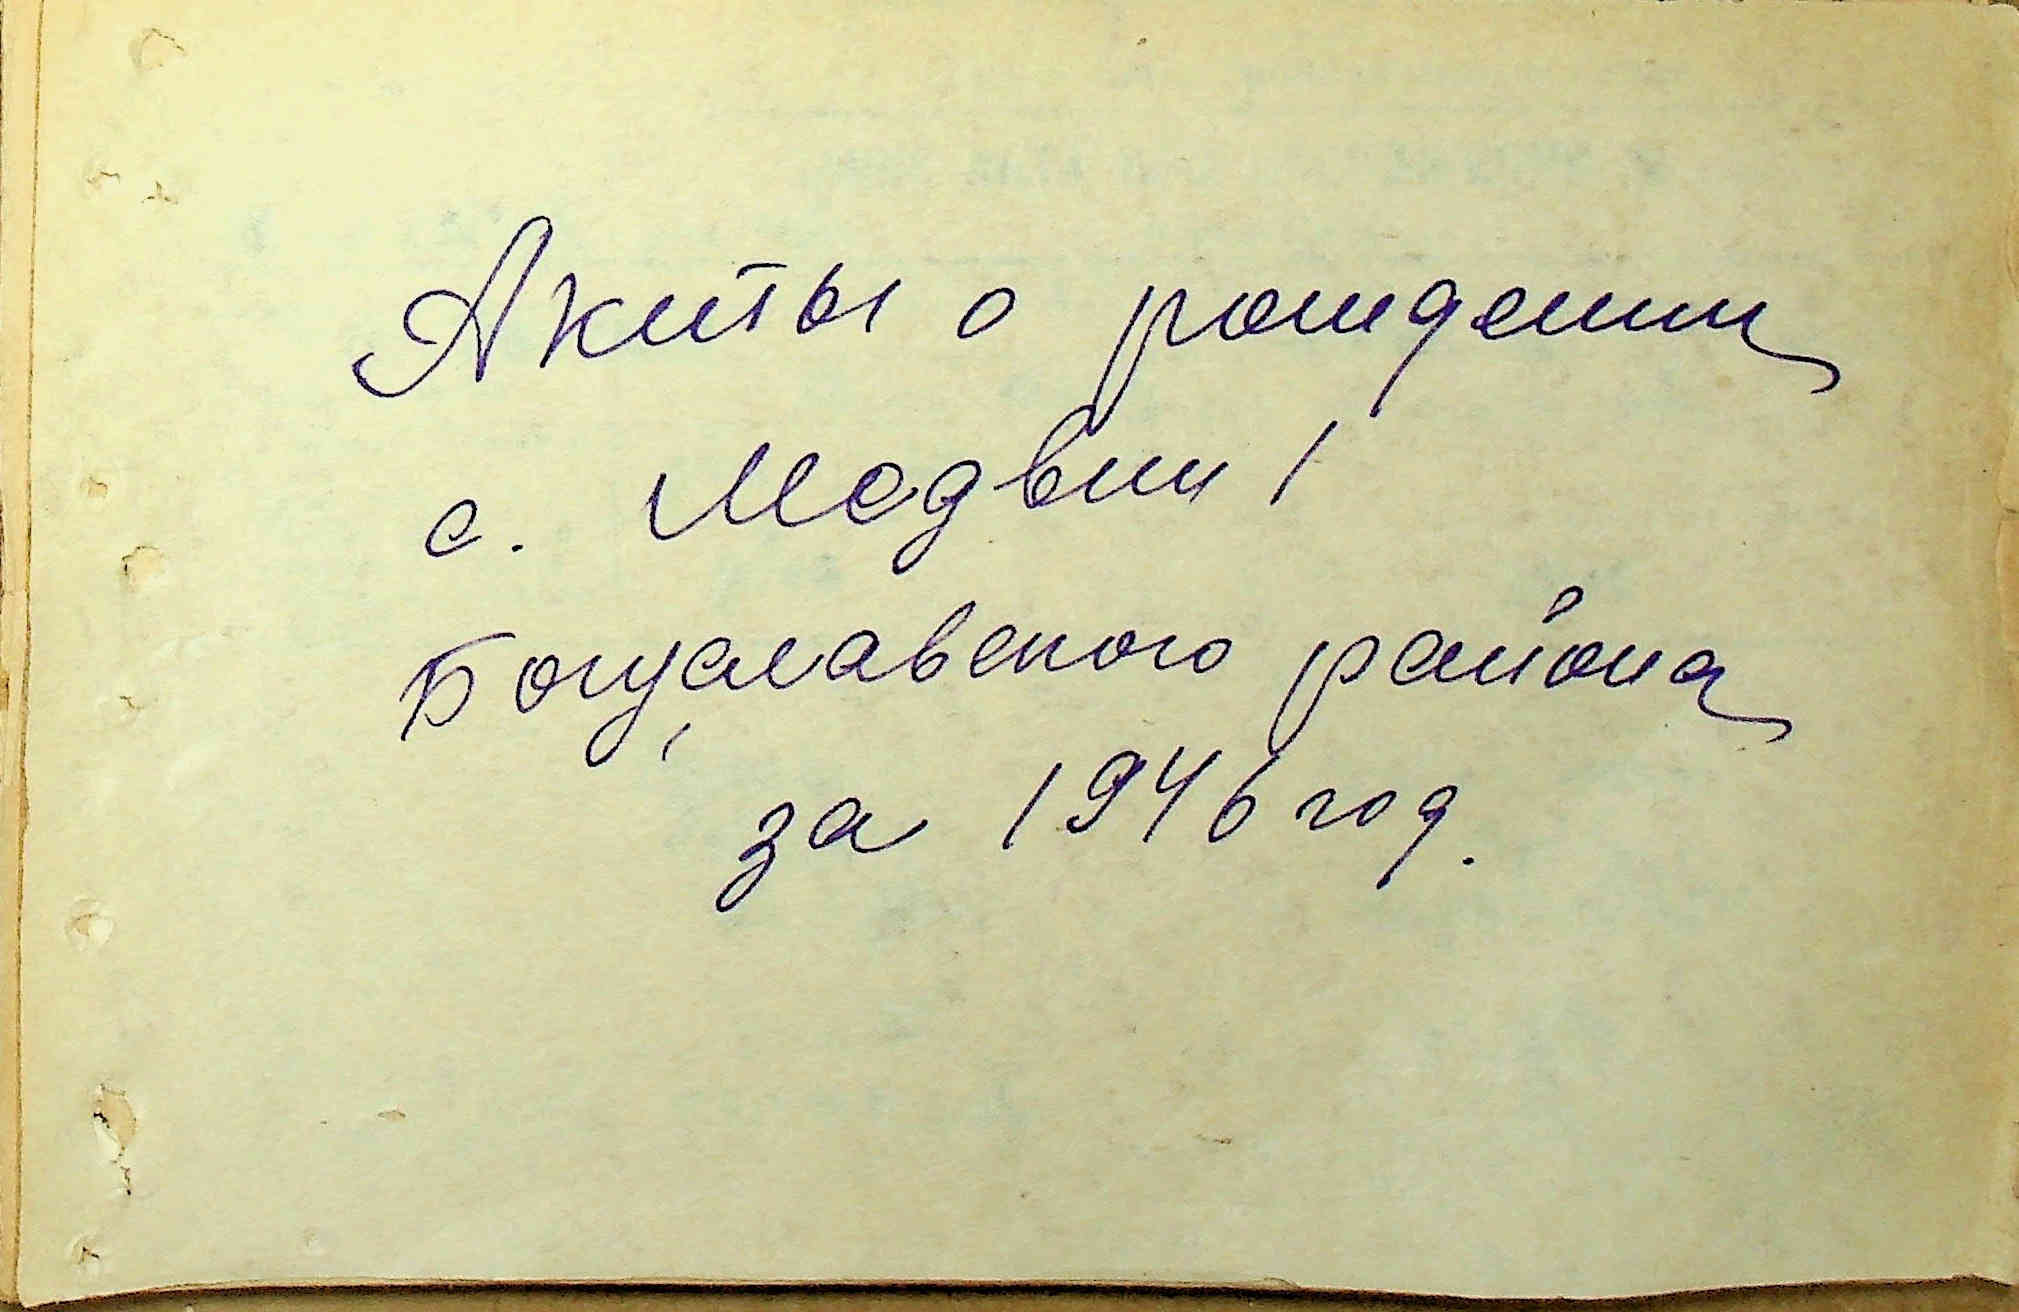 Акты о рождении
с. Медвин 1
Богуславского района
за 1946 год.